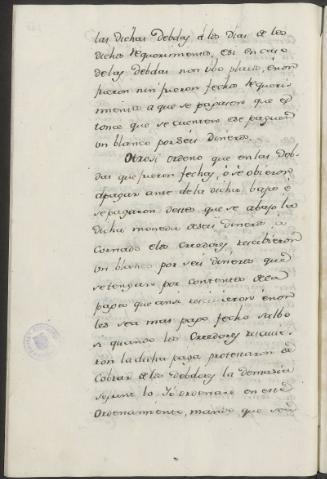 las dichas Debdas, a los dias de los
dichos requerimientos, e si en caso
de las debdas non ubo plazo, é non
fueron nin fueron fechos requeri-
mientos a que se pagasen que es-
tonce que se cuenten, e se paguen
un blanco por séis dineros.
Otrosi ordeno que en las Deb-
das que fueron fechas, ó se obieron
á pagar ante de la dicha baxa é
se pagaron dentes que se abajo la
dicha moneda à seis dineros
Cornado e los Creedores rescibieron
un blanco por seis dineros que
se tengan por contentos de la
paga que ansi rescibieron é non
les sea mas pago fecho salbo
si quando los Creedores rescivie-
ron la dicha paga protestaron de
Cobrar de los Debdores la demasia
segunt lo Yo ordenare en este
Ordenamiento, mando que sean